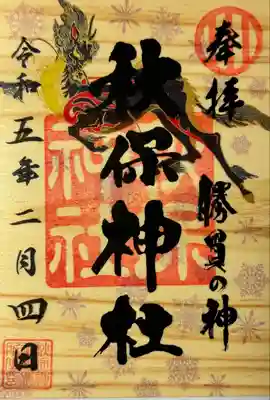 奉拝
勝負の神
秋保神社
令和五年二月四日